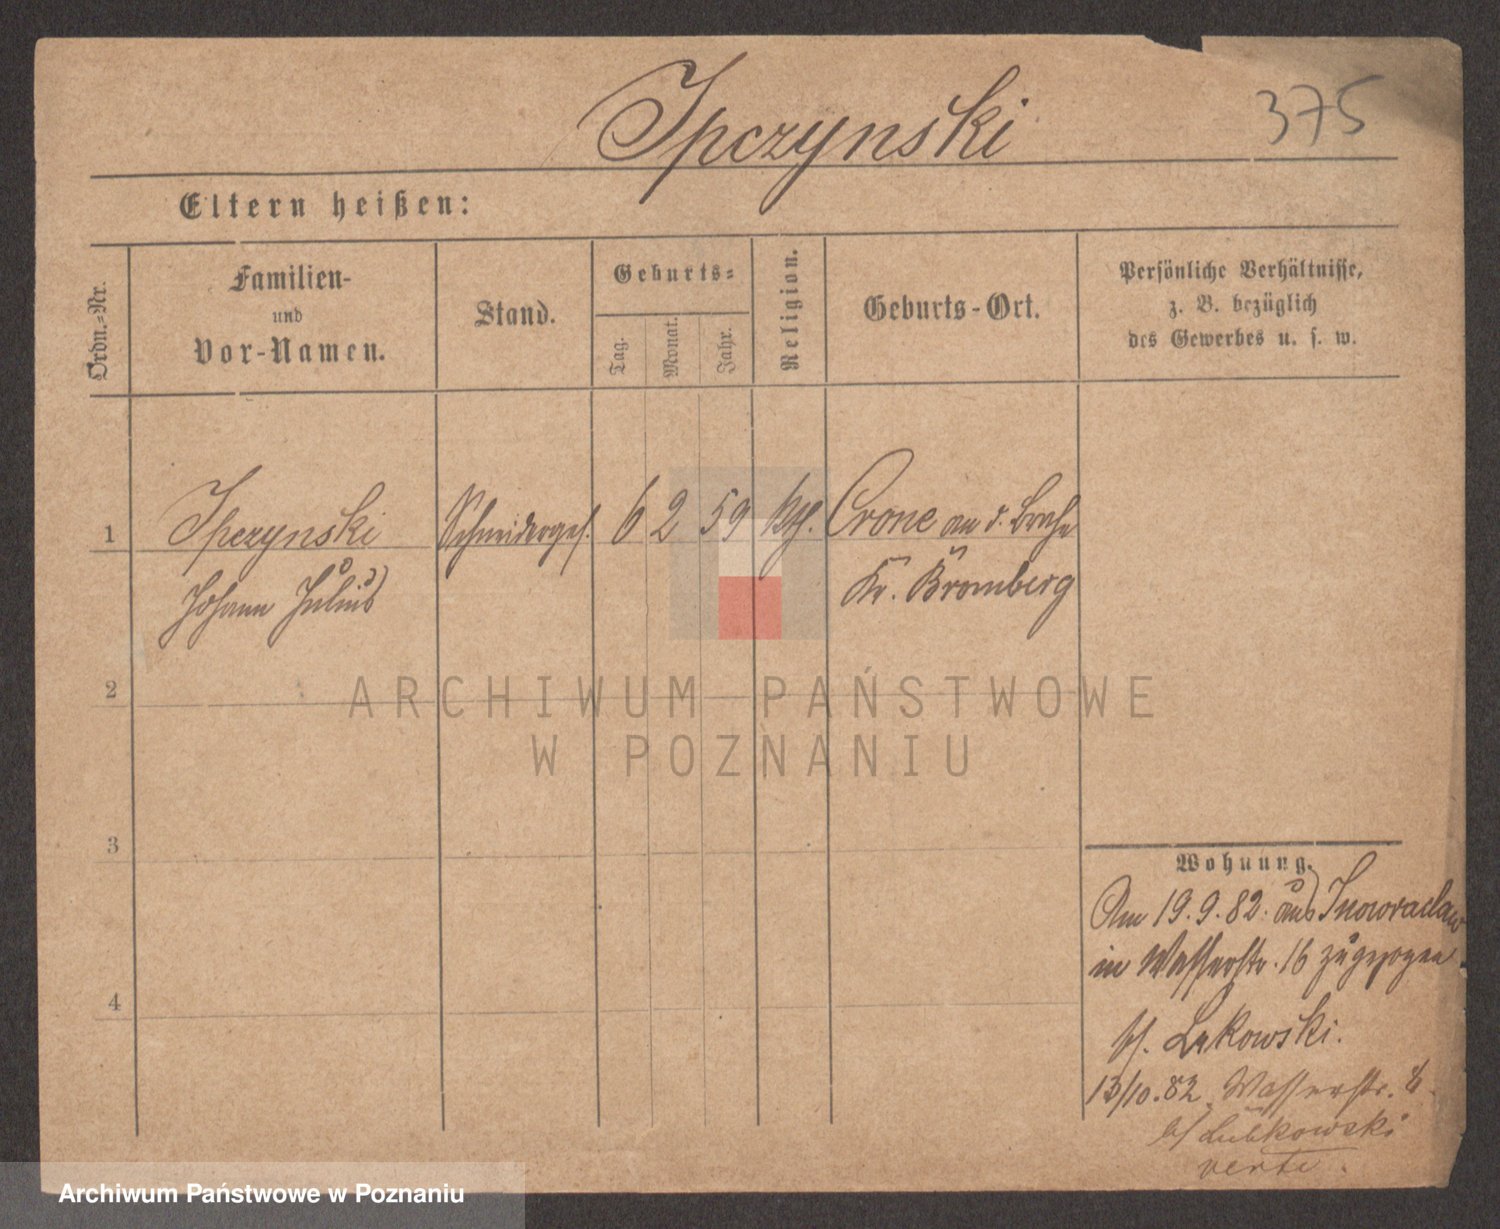 Ipczynski
375
Eltern heißen:
Ordn.-Nr.
Familien-
und
Vor-Namen.
Stand.
Geburts-
Tag.
Monat.
Jahr.
Religion.
Geburts-Ort.
Persönliche Verhältnisse,
z. B. bezüglich
des Gewerbes u. s. w.
1 Ipczynski Schneiderges. 6 2 59 kth. Crone an d. Brahe
Johann Julius Kr. Bromberg
2
3
4
Wohnung.
Am 19.9.82. aus Inowraclaw
in Wasserstr. 16 zugezogen
b/. Lukowski.
13/10.82. Wasserstr. 8.
b/ Lubkowski
verte.
ARCHIWUM PAŃSTWOWE
W POZNANIU
Archiwum Państwowe w Poznaniu